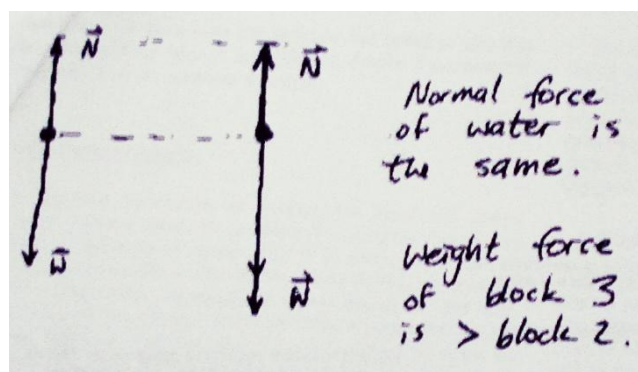 N⃗
N⃗
W⃗
W⃗
Normal force
of water is
the same.
Weight force
of block 3
is > block 2.